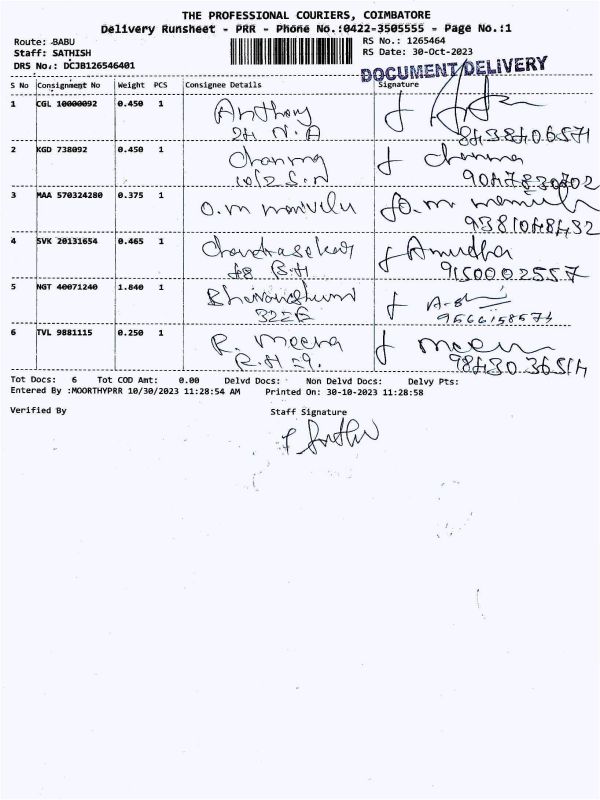 THE PROFESSIONAL COURIERS, COIMBATORE
Delivery Runsheet - PRR - Phone No.:0422-3505555 - Page No.:1
Route: BABU
Staff: SATHISH
DRS No.: DCJB126546401
RS No.: 1265464
RS Date: 30-Oct-2023
DOCUMENT DELIVERY
S No Consignment No Weight PCS Consignee Details Signature
1 CGL 10000092 0.450 1 Anthony
24 N.A 8438406571
2 KGD 738092 0.450 1
10/2 S.N 9047830702
3 MAA 570324280 0.375 1 O.m manivelu O.m
9381048432
4 SVK 20131654 0.465 1 Chandrasekar Amudha
48 B.H 9150002557
5 NGT 40071240 1.840 1
322E 9566158574
6 TVL 9881115 0.250 1 R. Meena
R.H 29. 9843036514
Tot Docs: 6 Tot COD Amt: 0.00 Delvd Docs: Non Delvd Docs: Delvy Pts:
Entered By :MOORTHYPRR 10/30/2023 11:28:54 AM Printed On: 30-10-2023 11:28:58
Verified By Staff Signature